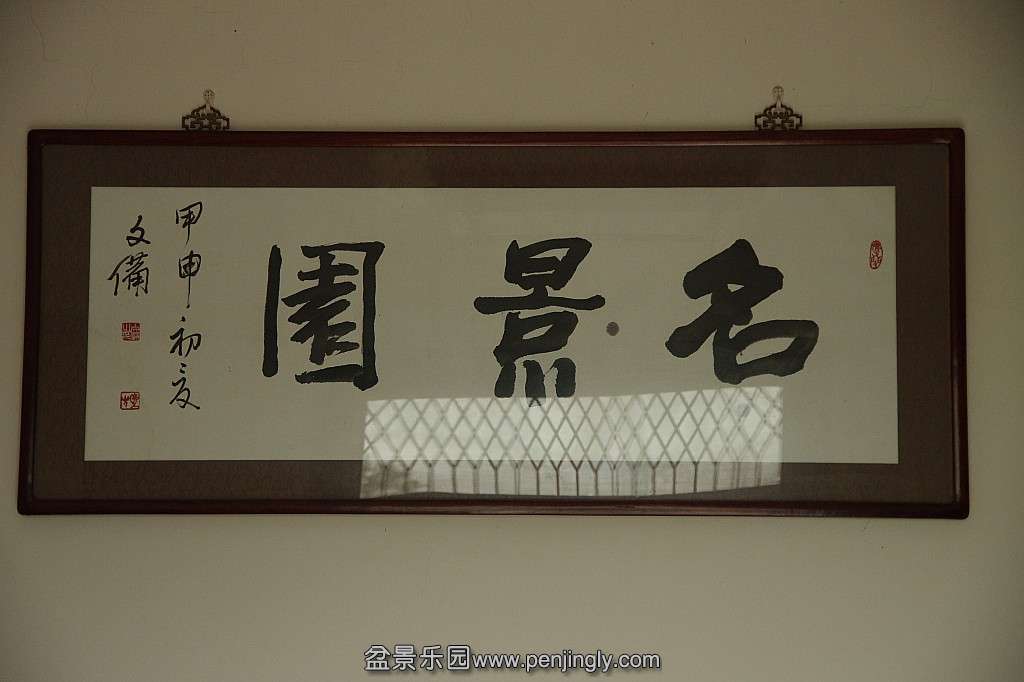 名景園
甲申初夏
文備
盆景乐园www.penjingly.com